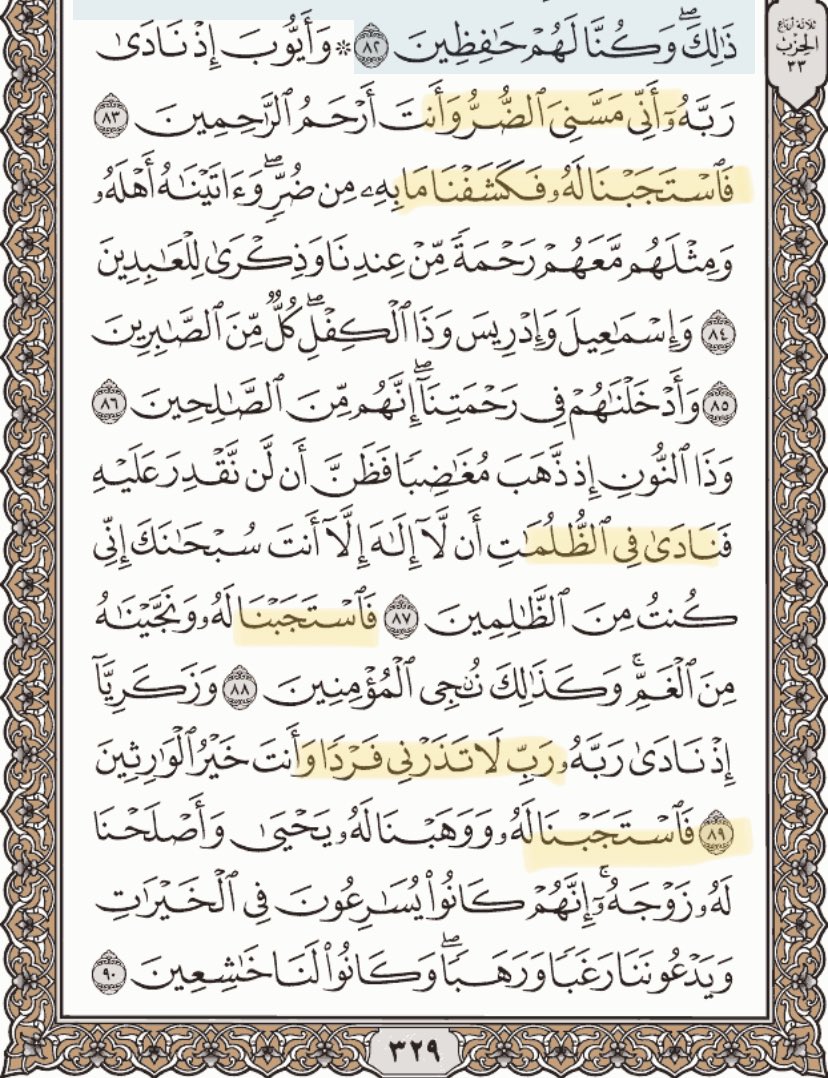 ثلاثة أرباع
الحزب
٣٣
ذَٰلِكَۖ وَكُنَّا لَهُمْ حَٰفِظِينَ ٨٢ ۞ وَأَيُّوبَ إِذْ نَادَىٰ
رَبَّهُۥٓ أَنِّى مَسَّنِىَ ٱلضُّرُّ وَأَنتَ أَرْحَمُ ٱلرَّٰحِمِينَ ٨٣
فَٱسْتَجَبْنَا لَهُۥ فَكَشَفْنَا مَا بِهِۦ مِن ضُرٍّۖ وَءَاتَيْنَٰهُ أَهْلَهُۥ
وَمِثْلَهُم مَّعَهُمْ رَحْمَةً مِّنْ عِندِنَا وَذِكْرَىٰ لِلْعَٰبِدِينَ
٨٤ وَإِسْمَٰعِيلَ وَإِدْرِيسَ وَذَا ٱلْكِفْلِۖ كُلٌّ مِّنَ ٱلصَّٰبِرِينَ
٨٥ وَأَدْخَلْنَٰهُمْ فِى رَحْمَتِنَآۖ إِنَّهُم مِّنَ ٱلصَّٰلِحِينَ ٨٦
وَذَا ٱلنُّونِ إِذ ذَّهَبَ مُغَٰضِبًا فَظَنَّ أَن لَّن نَّقْدِرَ عَلَيْهِ
فَنَادَىٰ فِى ٱلظُّلُمَٰتِ أَن لَّآ إِلَٰهَ إِلَّآ أَنتَ سُبْحَٰنَكَ إِنِّى
كُنتُ مِنَ ٱلظَّٰلِمِينَ ٨٧ فَٱسْتَجَبْنَا لَهُۥ وَنَجَّيْنَٰهُ
مِنَ ٱلْغَمِّۚ وَكَذَٰلِكَ نُۨجِى ٱلْمُؤْمِنِينَ ٨٨ وَزَكَرِيَّآ
إِذْ نَادَىٰ رَبَّهُۥ رَبِّ لَا تَذَرْنِى فَرْدًا وَأَنتَ خَيْرُ ٱلْوَٰرِثِينَ
٨٩ فَٱسْتَجَبْنَا لَهُۥ وَوَهَبْنَا لَهُۥ يَحْيَىٰ وَأَصْلَحْنَا
لَهُۥ زَوْجَهُۥٓۚ إِنَّهُمْ كَانُوا۟ يُسَٰرِعُونَ فِى ٱلْخَيْرَٰتِ
وَيَدْعُونَنَا رَغَبًا وَرَهَبًاۖ وَكَانُوا۟ لَنَا خَٰشِعِينَ ٩٠
٣٢٩